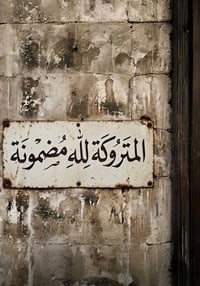 المَتروكَة للهِ مُضمونَة